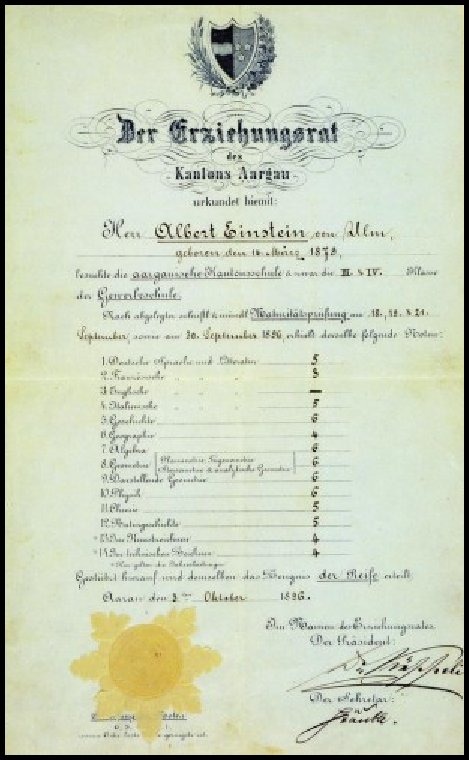 Der Erziehungsrat
des
Kantons Aargau
urkundet hiemit:
Herr Albert Einstein von Ulm,
geboren den 14. März 1879,
besuchte die aargauische Kantonsschule & zwar die III. & IV. Klasse
der Gewerbeschule.
Nach abgelegter schriftl. & mündl. Maturitätsprüfung am 18., 19. & 21.
September, sowie am 30. September 1896, erhielt derselbe folgende Noten:
1. Deutsche Sprache und Litteratur 5
2. Französische " " " 3
3. Englische " " " —
4. Italienische " " " 5
5. Geschichte 6
6. Geographie 4
7. Algebra 6
8. Geometrie (Planimetrie, Trigonometrie, 6
Stereometrie & analytische Geometrie) 6
9. Darstellende Geometrie 6
10. Physik 6
11. Chemie 5
12. Naturgeschichte 5
*13. Im Kunstzeichnen 4
*14. Im technischen Zeichnen 4
* Hier gelten die Jahresleistungen.
Gestützt hierauf wird demselben das Zeugnis der Reife erteilt.
Aarau den 3ten Oktober 1896.
Im Namen des Erziehungsrates
Der Präsident:
Der Sekretär: